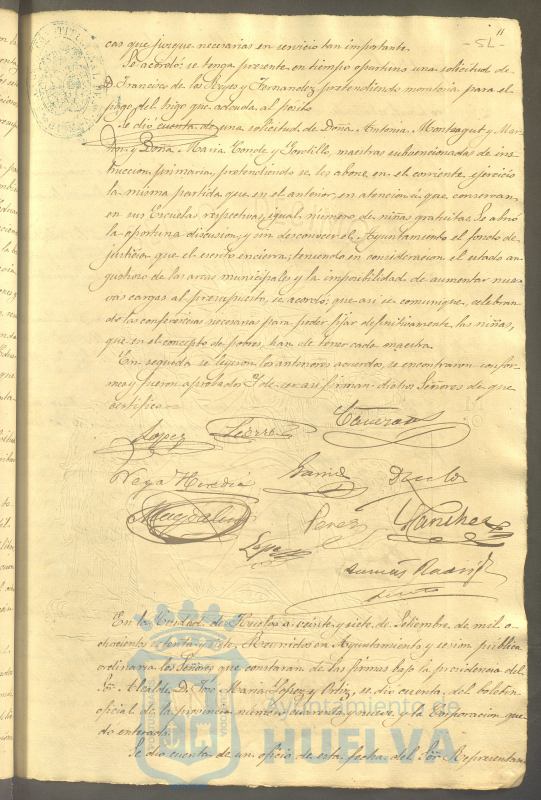 11
- 52 -
cas que juzgue necesarias en servicio tan importante.
Se acordó; se tenga presente en tiempo oportuno una solicitud de
D. Francisco de los Reyes y Fernandez pretendiendo moratoria para el
pago del trigo que adeuda al posito.
Se dio cuenta de una solicitud de Doña Antonia Montzagut y Mar-
y Doña Maria Conde y Gordillo, maestras subvencionadas de ins-
truccion primaria, pretendiendo se les abone en el corriente ejercicio
la misma partida que en el anterior, en atencion á que conservan
en sus Escuelas respectivas, igual numero de niñas gratuitas. Se abrió
la oportuna discusion, y sin desconocer el Ayuntamiento el fondo de
justicia que el escrito encierra; teniendo en consideracion el estado an-
gustioso de las arcas municipales y la imposibilidad de aumentar nue-
vas cargas al presupuesto, se acordó; que asi se comunique, celebran-
do las conferencias necesarias para poder fijar definitivamente las niñas,
que en el concepto de pobres, han de tener cada maestra.
En seguida se leyeron los anteriores acuerdos, se encontraron confor-
mes y fueron aprobados. Y de ser asi firman dichos Señores de que
certifico =
Lopez
Vega Heredia Garcia
Magdalena Perez Sanchez
Lopez
En la Ciudad de Huelva a veinte y siete de Setiembre de mil o-
chocientos setenta y siete, Reunidos en Ayuntamiento y sesion pública
ordinaria los Señores que constaran de las firmas bajo la presidencia del
Sor. Alcalde D. José Maria Lopez y Ortiz, se dio cuenta del boletin
oficial de la provincia numero cuarenta y nueve, y la Corporacion que-
dó enterada.
Se dio cuenta de un oficio de esta fecha del Sor. Representan-
Ayuntamiento de
HUELVA